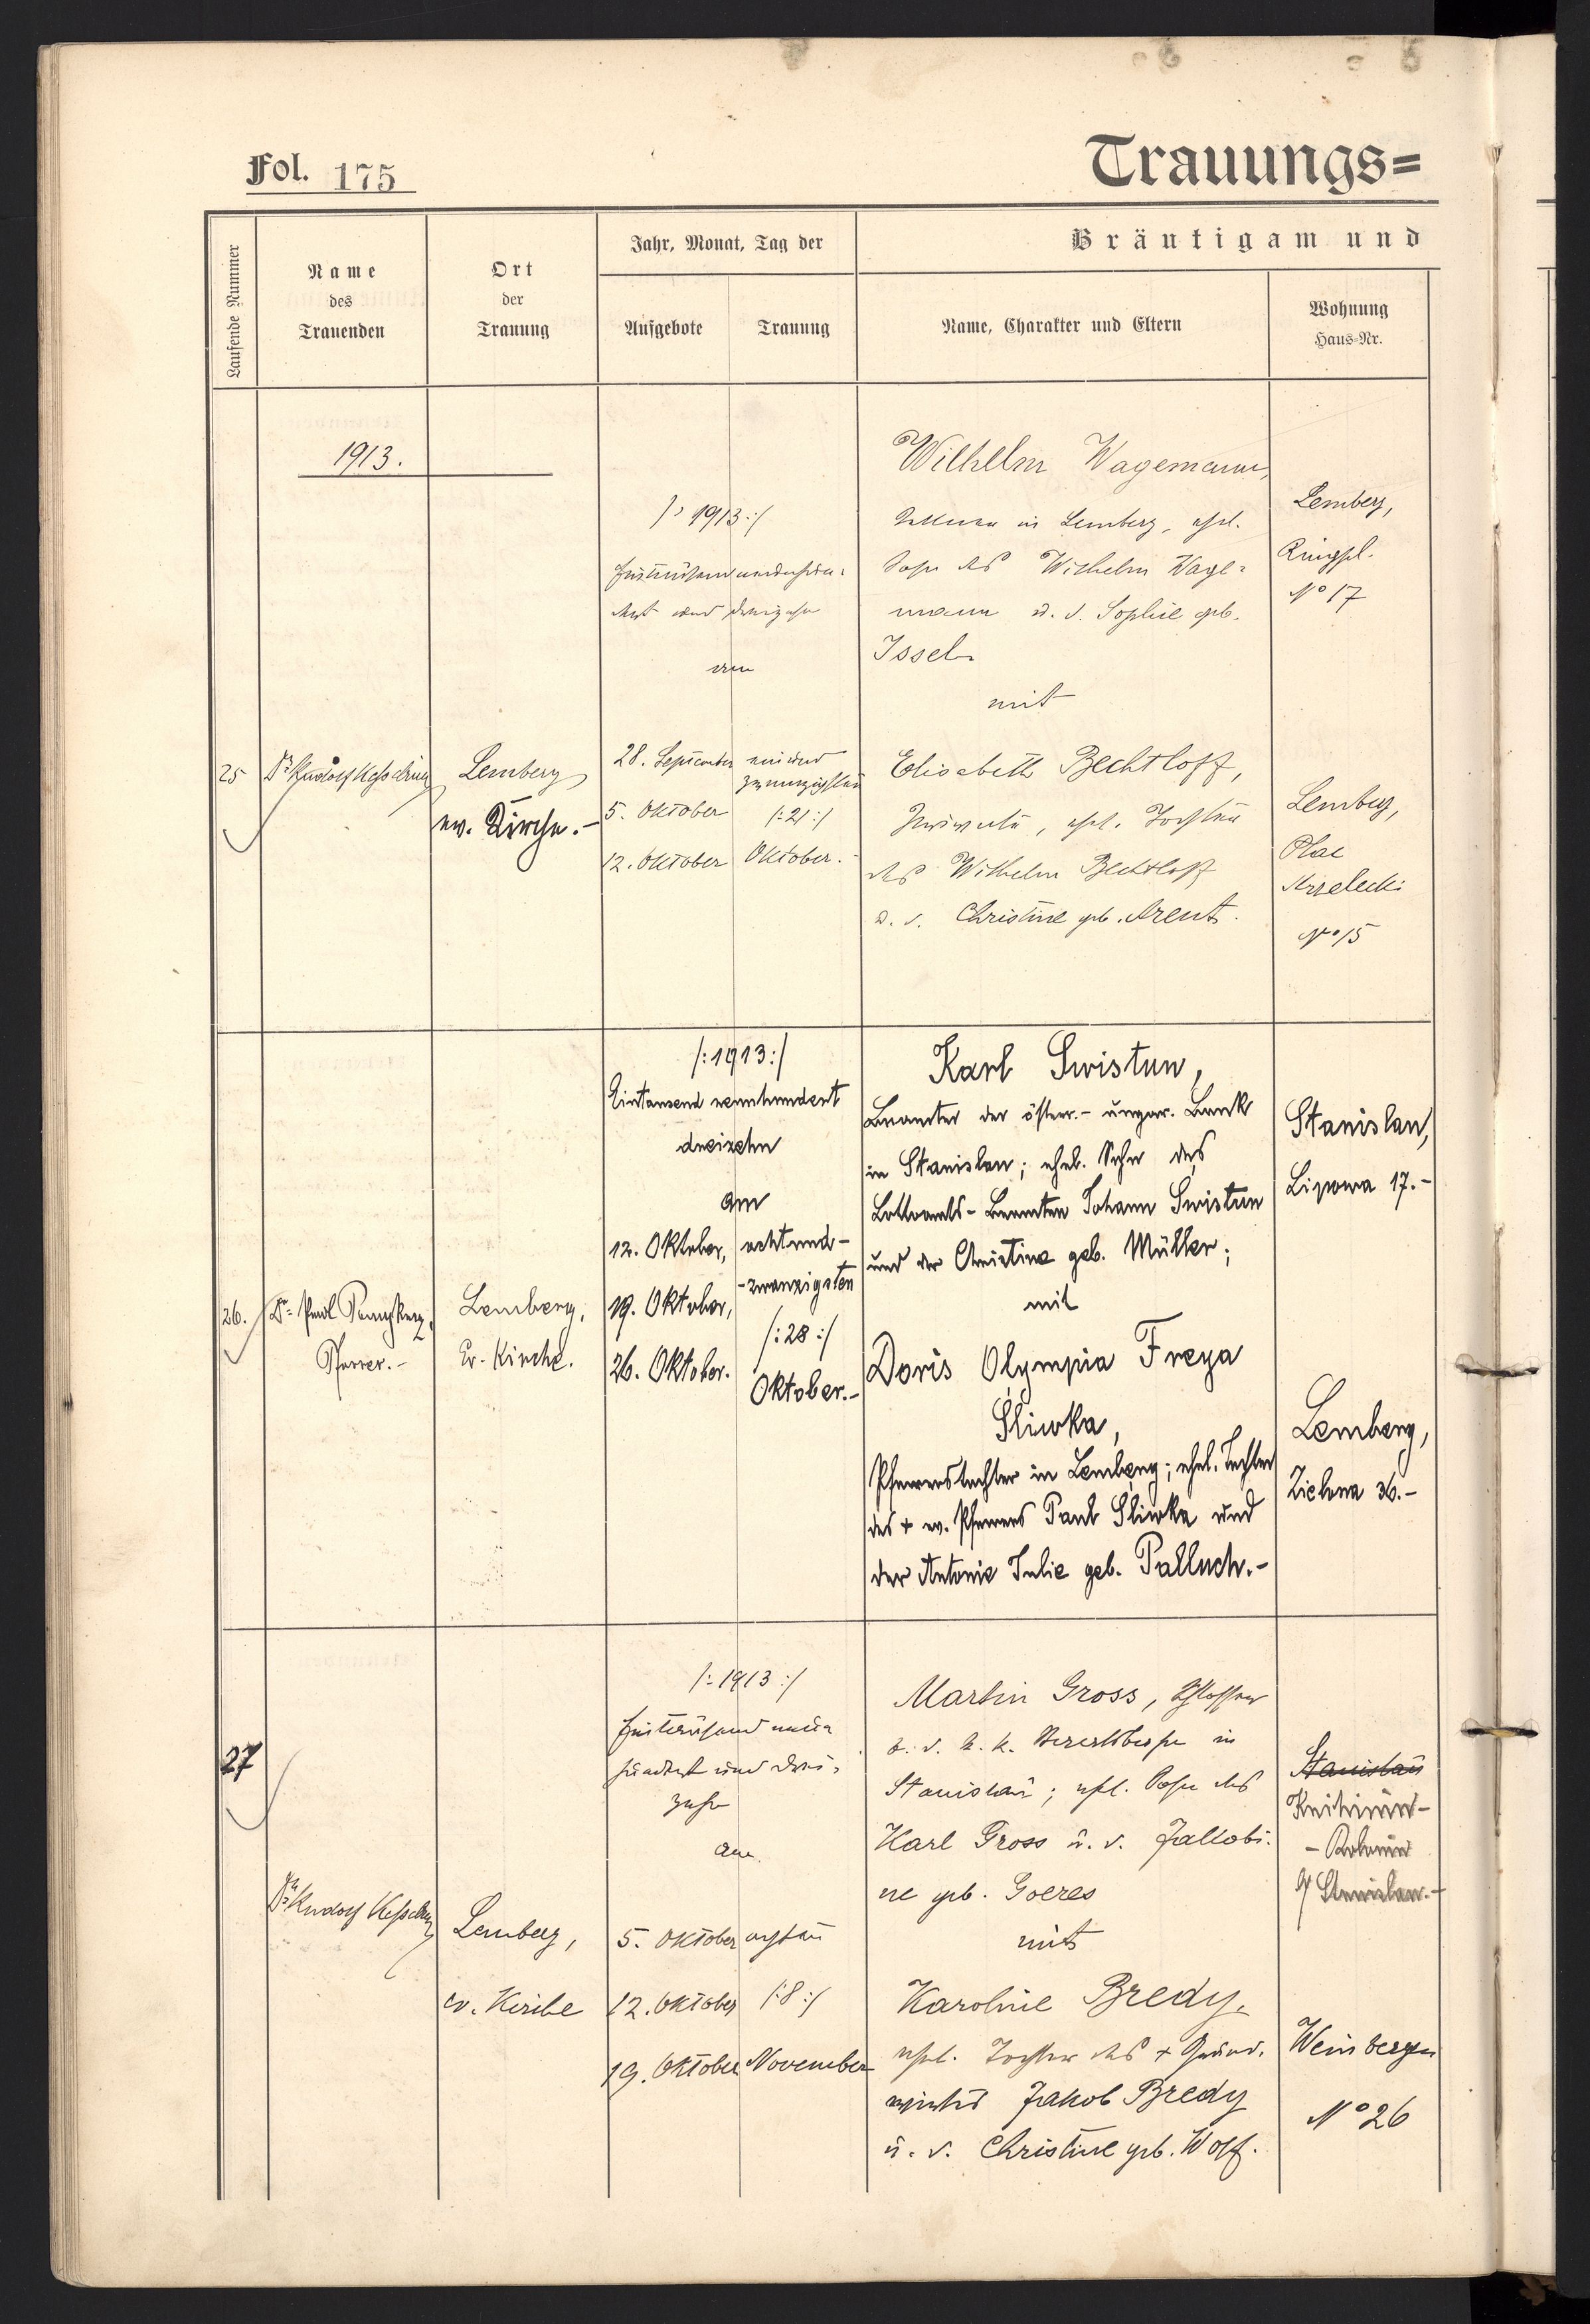 Fol. 175
Trauungs=
Laufende Nummer
Name
des
Trauenden
Ort
der
Trauung
Jahr, Monat, Tag der
Aufgebote
Trauung
Bräutigam und
Name, Charakter und Eltern
Wohnung
Haus-Nr.
1913.
25
Dr Rudolf Kesselring
Lemberg
ev. Kirche.-
/: 1913 :/
am
28. September
5. Oktober
12. Oktober
ein und
zwanzigsten
/: 21 :/
Oktober.
Wilhelm Wagemann,
in Lemberg, ehel.
Sohn des Wilhelm Wage-
mann u. d. Sophie geb.
Issel
mit
Elisabeth Bechtloff,
Private, ehel. Tochter
des Wilhelm Bechtloff
u. d. Christine geb. Arent.
Lemberg,
Ringpl.
No 17
Lemberg,
Plac
Strzelecki
No 15
26.
Dr. Paul
Pfarrer.-
Lemberg,
Ev. Kirche.
/: 1913 :/
Eintausend neunhundert
dreizehn
am
12. Oktober,
19. Oktober,
26. Oktober.
achtund-
-zwanzigsten
/: 28 :/
Oktober.-
Karl Swistun,
Beamter der österr.- ungar. Bank
in Stanislau; ehel. Sohn des
Lottoamts-Beamten Johann Swistun
und der Christine geb. Müller;
mit
Doris Olympia Freya
Sliwka,
Pfarrerstochter in Lemberg; ehel. Tochter
des + ev. Pfarrers Paul Sliwka und
der Antonie Julie geb. Palluch.-
Stanislau,
Lipowa 17.-
Lemberg,
Zielona 36.-
27
Dr Rudolf Kesselring
Lemberg,
ev. Kirche
/: 1913 :/
Eintausend neun
hundert und drei-
zehn
am
5. Oktober
12. Oktober
19. Oktober
achten
/: 8 :/
November
Martin Gross, Schlosser
b. d. k. k. in
Stanislau; ehel. Sohn des
Karl Gross u. d. Jakobi-
ne geb. Goeres
mit
Karoline Bredy,
ehel. Tochter des + Grund-
wirtes Jakob Bredy
u. d. Christine geb. Wolf.
Stanislau
Knihinin-
- Kolonie
b/ Stanislau.-
Weinbergen
No 26